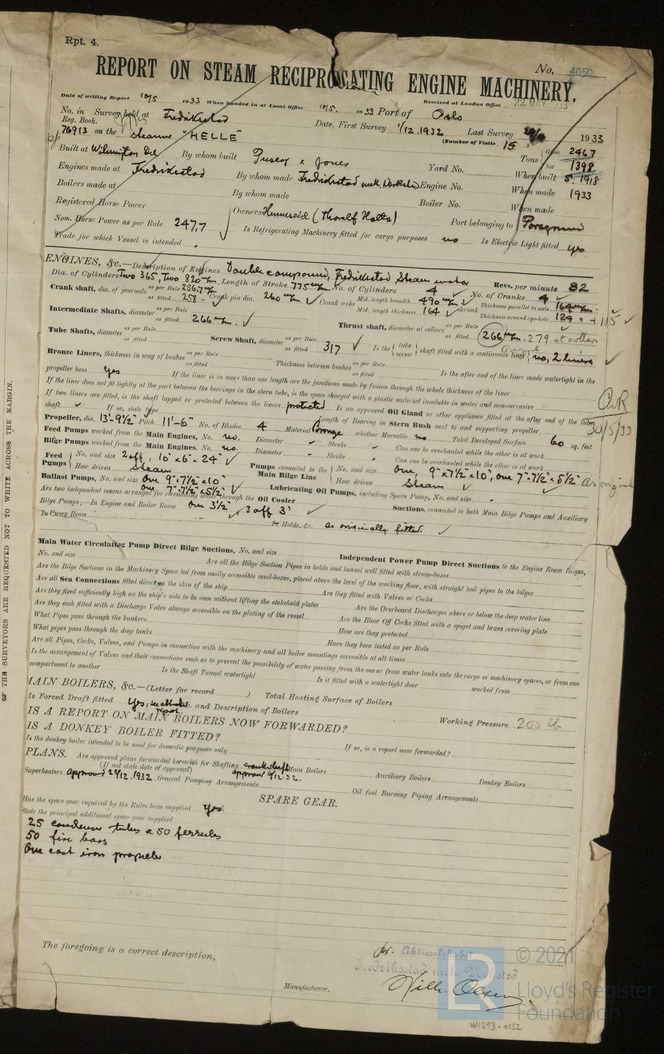 Rpt. 4.
No. 4050
REPORT ON STEAM RECIPROCATING ENGINE MACHINERY.
Date of writing Report 10/5 1933 When handed in at Local Office 10/5. 1933 Port of Oslo
Received at London Office
No. in Reg. Book. Survey held at Fredrikstad Date, First Survey 1/12.1932 Last Survey 1933
76913 on the Steamer "HELLE" (Number of Visits 15
Tons Gross 2467
Net 1398
Built at Wilmington Del By whom built Pusey & Jones Yard No. When built 5. 1918
Engines made at Fredrikstad By whom made Fredrikstad mek. Engine No. When made 1933
Boilers made at By whom made Boiler No. When made
Registered Horse Power Owners Port belonging to
Nom. Horse Power as per Rule 247,7 Is Refrigerating Machinery fitted for cargo purposes no Is Electric Light fitted yes
Trade for which Vessel is intended
ENGINES, &c.—Description of Engines Double compound, Fredrikstad Steam motor Revs. per minute 82
Dia. of Cylinders Two 365, Two 820 m/m Length of Stroke 775 m/m No. of Cylinders 4 No. of Cranks 4
Crank shaft, dia. of journals as per Rule 256.7 as fitted 258 Crank pin dia. 260 m/m Crank webs Mid. length breadth 490 m/m Mid. length thickness 164 Thickness parallel to axis 164 m/m Thickness around eye-hole 124 + 115
Intermediate Shafts, diameter as per Rule as fitted 266 m/m Thrust shaft, diameter at collars as per Rule as fitted 266 m/m 279 at collars
Tube Shafts, diameter as per Rule as fitted Screw Shaft, diameter as per Rule as fitted 317 Is the tube screw shaft fitted with a continuous liner no, 2 liners
Bronze Liners, thickness in way of bushes as per Rule as fitted Thickness between bushes as per Rule as fitted Is the after end of the liner made watertight in the
propeller boss Yes If the liner is in more than one length are the junctions made by fusion through the whole thickness of the liner
If the liner does not fit tightly at the part between the bearings in the stern tube, is the space charged with a plastic material insoluble in water and non-corrosive
If two liners are fitted, is the shaft lapped or protected between the liners protected Is an approved Oil Gland or other appliance fitted at the after end of the tube
shaft If so, state type Length of Bearing in Stern Bush next to and supporting propeller
Propeller, dia. 13'-9½" Pitch 11'-6" No. of Blades 4 Material Bronze whether Moveable no Total Developed Surface 60 sq. feet
Feed Pumps worked from the Main Engines, No. no. Diameter Stroke Can one be overhauled while the other is at work
Bilge Pumps worked from the Main Engines, No. no. Diameter Stroke Can one be overhauled while the other is at work
Feed Pumps No. and size 2 off, 10" × 6" × 24" How driven Steam
Pumps connected to the Main Bilge Line No. and size One, 9" × 7½" × 10", one 7" × 7½" × 5½" How driven Steam as original
Ballast Pumps, No. and size One 9" × 7½" × 10" One 7" × 7½" × 5½" Lubricating Oil Pumps, including Spare Pump, No. and size
Are two independent means arranged for circulating water through the Oil Cooler Suctions, connected to both Main Bilge Pumps and Auxiliary
Bilge Pumps:—In Engine and Boiler Room One 3½", 3 off 3"
In Pump Room In Holds, &c. as originally fitted
Main Water Circulating Pump Direct Bilge Suctions, No. and size Independent Power Pump Direct Suctions to the Engine Room Bilges,
No. and size Are all the Bilge Suction Pipes in holds and tunnel well fitted with strum-boxes
Are the Bilge Suctions in the Machinery Space led from easily accessible mud-boxes, placed above the level of the working floor, with straight tail pipes to the bilges
Are all Sea Connections fitted direct on the skin of the ship Are they fitted with Valves or Cocks
Are they fixed sufficiently high on the ship's side to be seen without lifting the stokehold plates Are the Overboard Discharges above or below the deep water line
Are they each fitted with a Discharge Valve always accessible on the plating of the vessel Are the Blow Off Cocks fitted with a spigot and brass covering plate
What Pipes pass through the bunkers How are they protected
What pipes pass through the deep tanks Have they been tested as per Rule
Are all Pipes, Cocks, Valves, and Pumps in connection with the machinery and all boiler mountings accessible at all times
Is the arrangement of Valves and their connections such as to prevent the possibility of water passing from the sea or from water tanks into the cargo or machinery spaces, or from one
compartment to another Is the Shaft Tunnel watertight Is it fitted with a watertight door worked from
MAIN BOILERS, &c.—(Letter for record ) Total Heating Surface of Boilers
Is Forced Draft fitted Yes, No. and Description of Boilers Working Pressure 200 lb
IS A REPORT ON MAIN BOILERS NOW FORWARDED?
IS A DONKEY BOILER FITTED? If so, is a report now forwarded?
Is the donkey boiler intended to be used for domestic purposes only
PLANS. Are approved plans forwarded herewith for Shafting crankshaft Main Boilers Auxiliary Boilers Donkey Boilers
(If not state date of approval)
Superheaters approved 29/12.1932 General Pumping Arrangements Oil fuel Burning Piping Arrangements
SPARE GEAR.
Has the spare gear required by the Rules been supplied Yes.
State the principal additional spare gear supplied
25 condenser tubes & 50 ferrules
50 fire bars
One cast iron propeller
The foregoing is a correct description,
Manufacturer.
OF THE SURVEYORS ARE REQUESTED NOT TO WRITE ACROSS THE MARGIN.
30/5/33
© 2021
LR
Lloyd's Register
Foundation
W1293-0152